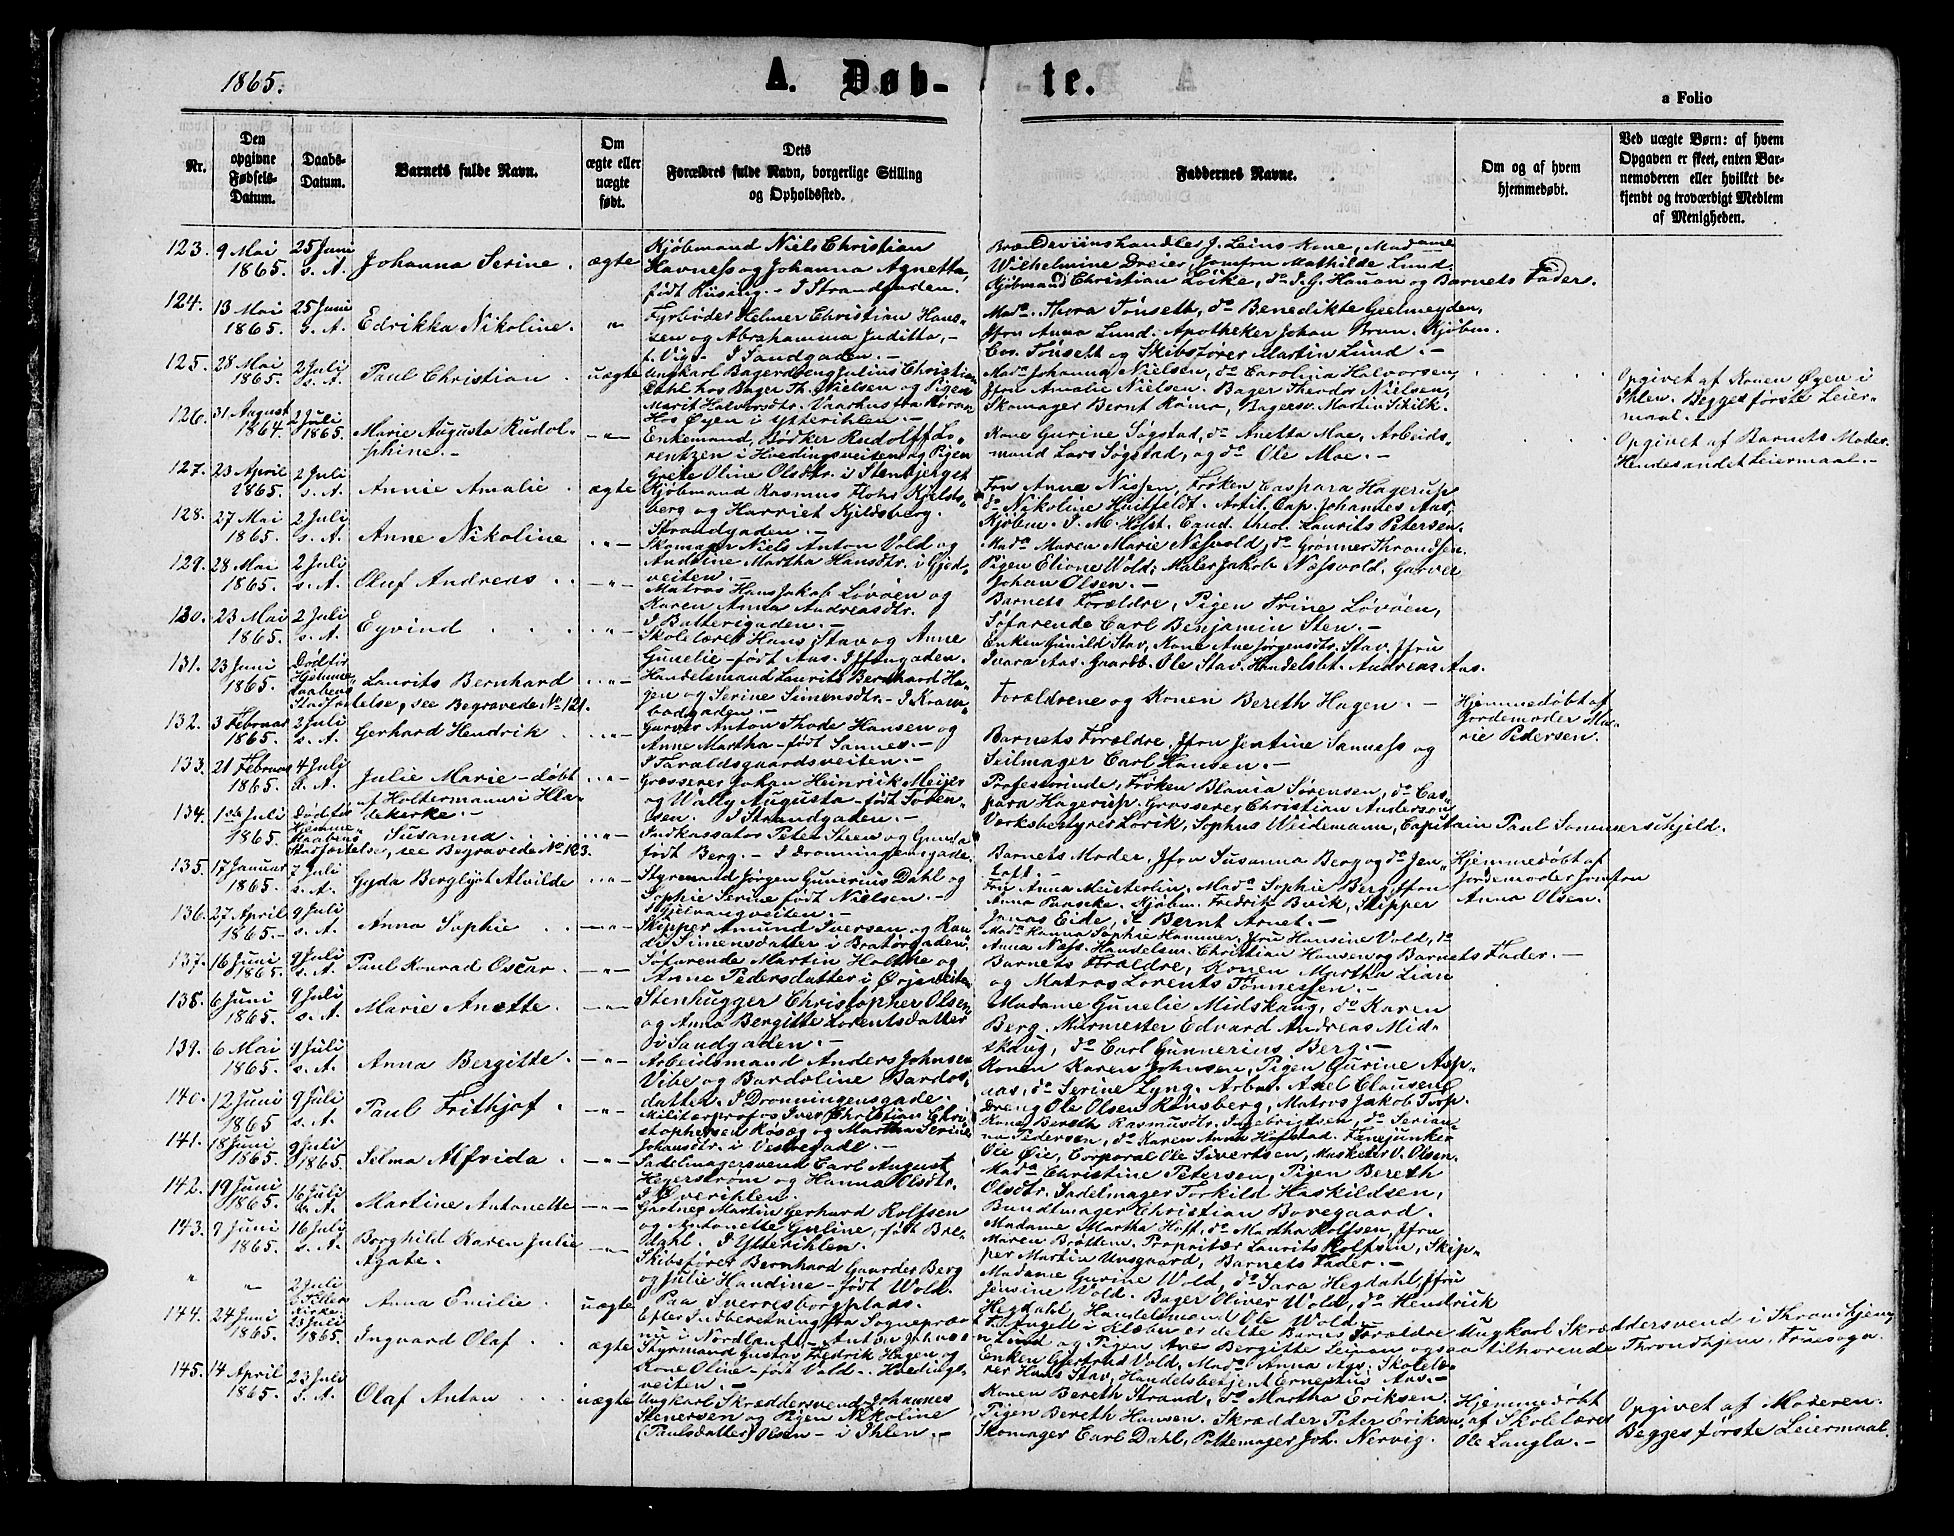 1865.
A. Døb-
te.
a Folio
Nr.
Den opgivne Fødsels-Datum.
Daabs-Datum.
Barnets fulde Navn.
Om ægte eller uægte født.
Dets Forældres fulde Navn, borgerlige Stilling og Opholdssted.
Faddernes Navne.
Om og af hvem hjemmedøbt.
Ved uægte Børn: af hvem Opgaven er skeet, enten Barnemoderen eller hvilket bekjendt og troværdigt Medlem af Menigheden.
123. 9 Mai 1865. 25 Juni s. A. Johanna Serine. ægte
Kjøbmand Niels Christian
Havness og Johanna Agnetta,
født Kiisang. - I Strandgaden.
Brændeviinshandler J. Leins Kone, Madame
Wilhelmine Dreier, Jomfru Mathilde Lund.
Kjøbmand Christian Löcke, do J. G. Hauan og Barnets Fader.
124. 13 Mai 1865. 25 Juni s. A. Edrikka Nikoline. "
Fyrbøder Helmer Christian Hans-
sen og Abrahamma Juditta, -
f. Vigs - I Sandgaden. -
Mada. Thora Tönseth, do Benedikte Geelmeyden,
Jfru Anna Lund. Apotheker Johan Brun. Kjøbm.
Chr. Tönseth og Skibsfører Martin Lund. -
125. 28 Mai 1865. 2 Juli s. A. Paul Christian. uægte
Ungkarl Bagerdreng Julius Christian
Dahl hos Bager Th. Nielsen og Pigen
Marit Halvorsdtr. Vaarhus fra Röraas
Hos Øyen i Ytterihlen.
Mada Johanna Nielsen, do Carolina Halvorsen,
Jfru Amalie Nielsen. Bager Theodor Nielsen,
Skomager Bernt Römo, Bagersv. Martin Schilk.
Opgivet af Konen Øyen i
Ihlen. Begges første Leier-
maal. -
126. 31 August 1864. 2 Juli 1865. Marie Augusta Rudol-
phine. -
Enkemand, Bødker Rudolff Lo-
rentzen i Hvedingsveiten og Pigen
Grete Oline Olsdtr. i Stenbjerget
Kone Gurine Søgstad, do Anetta Moe, Arbeids-
mand Lars Søgstad, og do Ole Moe. -
Opgivet af Barnets Moder.
Hendes andet Leiermaal. -
127. 23 April 1865. 2 Juli s. A. Annie Amalie. ægte
Kjøbmand Rasmus Flohr Kjelds-
berg og Harriet Kjeldsberg.
Strandgaden. -
Fru Anna Nissen, Frøken Caspara Hagerup,
do Nikoline Huitfeldt. Artil. Cap. Johannes Aas.
Kjøbm. J. M. Holst. Cand. theol. Laurits Petersen.
128. 27 Mai 1865. 2 Juli s. A. Anne Nikoline
Skomager Niels Anton Vold og
Andrine Martha Hansdtr. i Gjed-
veiten. -
Mada Maren Marie Næsvold, do Grønner Throndsen.
Pigen Elione Wold. Maler Jakob Næssvold. Garver
Johan Olsen. -
129. 28 Mai 1865. 2 Juli s. A. Oluf Andreas
Matros Hans Jakob Løvöen og
Karen Anna Andreasdtr.
I Batterigaden. -
Barnets Forældre, Pigen Trine Løvöen,
Søfarende Carl Benjamin Sten. -
130. 23 Mai 1865. 2 Juli s. A. Eyvind
Skolelærer Hans Stav og Anne
Gunelie - født Aas. I Ilfengaden.
Enken Gunild Stav, Kone Ane Jørgensdtr. Stav. Jfru
Ivara Aas. Gaardb. Ole Stav. Handelsbt. Andreas Aas.
131. 23 Juni 1865. Død før Hjemmedaabens Stadfæstelse, see Begravede No 121. Laurits Bernhard
Handelsmand Laurits Bernhard Ha-
gen og Serine Simensdtr. - I Kram-
bodgaden. -
Forældrene og Konen Bereth Hagen. -
Hjemmedøbt af
Jordemoder Ma-
rie Pedersen.
132. 3 Februar 1865. 2 Juli s. A. Gerhard Hendrik.
Garver Anton Thode Hansen og
Anne Martha - født Sannes. -
I Taraldsgaardsveiten. -
Barnets Forældre, Jfru Jentine Sanness og
Seilmager Carl Hansen. -
133. 21 Februar 1865. 4 July s. A. Julie Marie - døbt
af Holtermann i Hla-
dekerke. -
Grosserer Johan Heinrich Meyer
og Wally Augusta - født Soren-
sen. I Strandgaden. -
Professorinde, Frøken Blavia Sørensen, do Cas-
para Hagerup. Grosserer Christian Anderson
Værksbestyrer Lorik, Sophus Weidemann, Capitain Paul Sommerschjeld.
134. 1ste Juli 1865. Død før Hjemmedaabens Stadfæstelse, see Begravede No 123. Susanna.
Indkassator Peter Steen og Gunda
født Berg. - I Dronningensgade.
Barnets Moder, Jfru Susanna Berg og do Jen-
Toft. -
Hjemmedøbt af
Jordemoder Jomfru
Anna Olsen.
135. 17 Januar 1865. 7 Juli s. A. Gyda Berglyot Alvilde
Styrmand Jørgen Gunerius Dahl og
Sophie Serine født Nielsen. -
Kjelvangveiten. -
Fru Anna Meisterlin, Mada Sophie Berg, Jfru
Anna Paaske. Kjøbm. Fredrik Bvik, Skipper
Jonas Eide, do Bernt Arnet. -
136. 27 April 1865. - 9 Juli s. A. Anna Sophie
Skipper Amund Iversen og Ran-
di Simensdatter i Bratörgaden.
Mada Hanna Sophie Hammer, Jfru Hansine Vold, do
Anna Næss. Handelsm. Christian Hansen og Barnets Fader. -
137. 16 Juni 1865. 9 Juli s. A. Paul Konrad Oscar.
Søfarende Martin Holthe og
Anne Pedersdatter i Ørjaveiten
Barnets Forældre, Konen Martha Lian
og Matros Lorents Tönnessen. -
138. 6 Juni 1865. 9 Juli s. A. Marie Anette.
Stenhugger Christopher Olsen
og Anna Bergitte Lorentsdatter
i Sandgaden. -
Madame Gunelie Midskaug, do Karen
Berg. Murmester Edvard Andreas Mid-
skaug, do Carl Gunnerius Berg. -
139. 6 Mai 1865. 9 Juli s. A. Anna Bergitte.
Arbeidsmand Anders Johnsen
Vibe og Bardoline Bardos-
datter. I Dronningensgade.
Konen Karen Johnsen, Pigen Gurine Asp-
aas, do Serine Lyng. Arbm. Axel Clausen,
Dreng Ole Olsen Rönsberg, Matros Jakob Torp.
140. 12 Juni 1865 9 Juli s. A. Paul Frithjof.
Militærprofos Iver Christian Chri-
stophersen Röség og Martha Serine
Johansdtr. i Vestregade. -
Kone Bereth Rasmusdtr. Ingebrigtsen, do Serian-
na Pedersen, do Karen Anna Hofstad. Fanejunker
Ole Øie, Corporal Ole Sivertsen, Musketer V. Olsen.
141. 18 Juni 1865. 9 Juli 1865. Selma Alfrida.
Sadelmagersvend Carl August
Hegerström og Hanna Olsdtr.
I Øverihlen.
Mada Christine Petersen, Pigen Bereth
Olsdtr. Sadelmager Torkild Haskildsen,
Bundtmager Christian Bovegaard.
142. 19 Juni 1865. 16 Juli s. A. Martine Antonette
Gartner Martin Gerhard Rolfsen
og Antonette Guline, født Bre-
dahl. I Ytterihlen.
Madame Martha Hoff, do Martha Rolfsen, Jfru
Maren Bröttem. Proprietær Laurits Rolfsen, Skip-
per Martin Unsgaard, Barnets Fader. -
143. 9 Juni 1865. 16 July s. A. Borghild Karen Julie
Agate.
Skibsfører Bernhard Gaarder Berg
og Julie Handine - født Wold.
Paa Sverresborgplads.
Madame Gurine Wold, do Sara Hegdahl, Jfru
Jensine Wold. Bager Oliver Wold, do Hendrik
Hegdahl, Handelsmand Ole Wold. -
" " 2 Juli Anna Emilie. uægte
Efter Indberetning fra Sognepræ-
Angell i Klæbu er dette Barns Forældre Ungkarl Skræddersvend i Throndhjem
og Pigen Ane Bergitte Leiran ogsaa tilhørende Throndhjem Fruesogn.
144. 24 Juni 1865. 23 Juli 1865. Ingvard Olaf. ægte
Styrmand Gustav Fredrik Hagen og
Kone Oline - født Vold. Hvedings-
veiten. -
Enken Gjertrud Vold, Mada Anna Aas. Skolelæ-
rer Hans Stav, Handelsbetjent Ernestus Aas. -
145. 14 April 1865. 23 Juli s. A. Olaf Anton uægte
Ungkarl Skræddersvend Johannes
Stenersen og Pigen Nikoline
(Paulsdatter) Olsen - i Ihlen. -
Konen Bereth Strand, do Martha Eriksen.
Pigen Bereth Hansen. Skrædder Peter Eriksen,
Skomager Carl Dahl, Pottemager Joh. Nervig.
Hjemmedøbt
af Skolelærer
Ole Langla. -
Opgivet af Moderen.
Begges første Leiermaal.